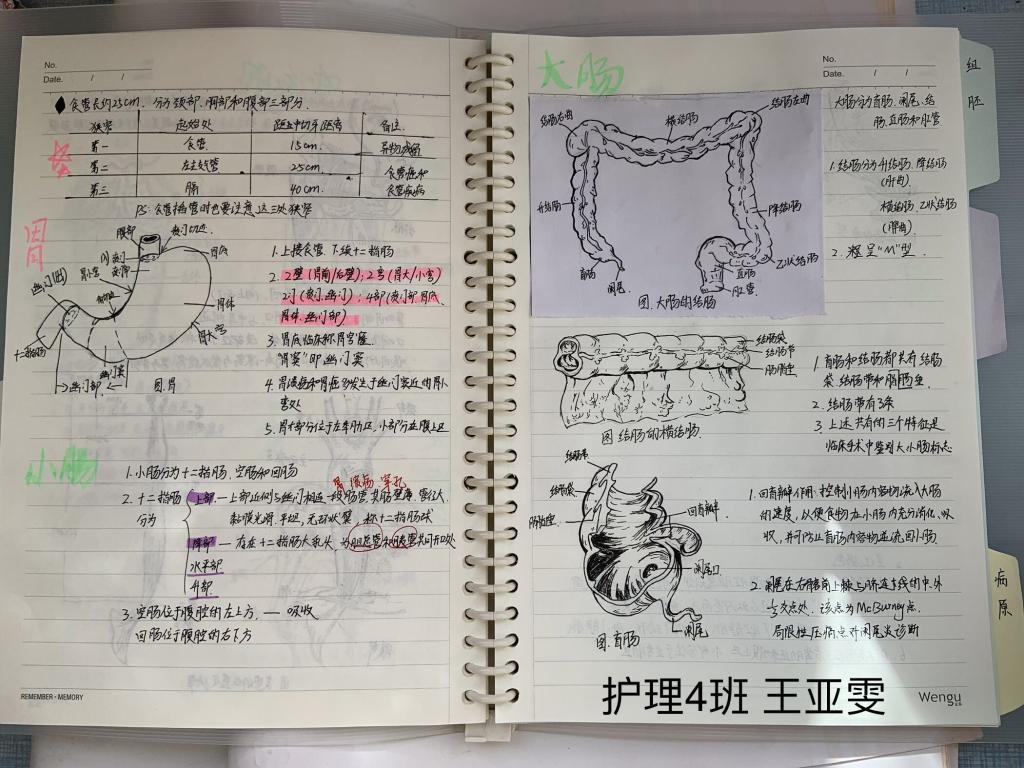 No.
Date. / /
食管长约25cm. 分为颈部、胸部和腹部三部分.
狭窄 起始处 距中切牙距离 备注
第一 食管 15cm.
第二 左主支气管 25cm 食管癌和
第三 膈 40cm. 食管疾病
PS: 食管插管时也要注意这三处狭窄
胃
腹部
贲门切迹
贲门
胃小弯
胃底
幽门
胃体
胃大弯
十二指肠
幽门窦
幽门部
图 胃
1. 上接食管. 下续十二指肠
2. 2壁(胃前/后壁); 2弯(胃大/小弯)
2门(贲门、幽门); 4部(贲门部 胃底
胃体 幽门部)
3. 胃底临床称胃穹窿
"胃窦"即幽门窦
4. 胃溃疡和胃癌多发生于幽门窦近的胃小
弯处
5. 胃大部分位于左季肋区. 小部分在腹上区
小肠
1. 小肠分为十二指肠、空肠和回肠
胃溃疡 穿孔
2. 十二指肠 上部— 上部近侧与幽门相连一段肠管,其肠壁薄,管径大,
分为 黏膜光滑平坦, 无环状襞, 称十二指肠球
降部— 存在十二指肠大乳头, 为胆总管和胰管共同开口处
水平部
升部
3. 空肠位于腹腔的左上方. — 吸收
回肠位于腹腔的右下方
REMEMBER · MEMORY
大肠
No.
Date. / /
结肠右曲
横结肠
结肠左曲
升结肠
降结肠
盲肠
阑尾
直肠
乙状结肠
肛管
图. 大肠的结肠
大肠分为盲肠、阑尾、结
肠、直肠和肛管
1. 结肠分为升结肠、降结肠
(肝曲)
横结肠、乙状结肠
(脾曲)
2. 框呈"M"型
结肠袋
结肠带
肠脂垂
图 结肠的横结肠
1. 盲肠和结肠都具有结肠
袋、结肠带和肠脂垂
2. 结肠带有3条
3. 上述共有的三个特征是
临床手术中鉴别大小肠标志
结肠带
结肠袋
肠脂垂
回盲瓣
阑尾口
阑尾
图. 盲肠
1. 回盲瓣作用: 控制小肠内容物流入大肠
的速度, 以使食物在小肠内充分消化、吸
收, 并可防止盲肠内容物逆流回小肠.
2. 阑尾在右髂前上棘与脐连线的中、外
1/3交点处. 该点为McBurney点.
局限性压痛点对阑尾炎诊断
组
胚
病
原
Wengu
护理4班 王亚雯